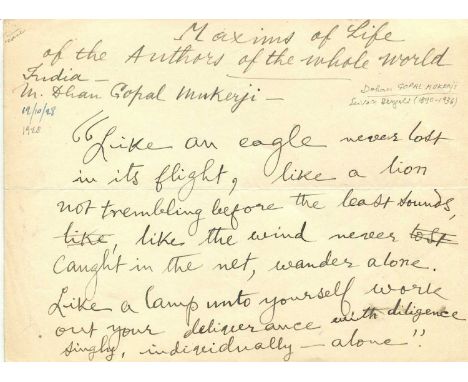 Maxims of Life
of the Authors of the whole world
India —
M. Dhan Gopal Mukerji —
Dohan GOPAL MUKERJI
(1890-1936)
12/10/28
1928
"Like an eagle never lost
in its flight, like a lion
not trembling before the least sounds,
like, like the wind never lost
caught in the net, wander alone.
Like a lamp unto yourself work
out your deliverance with diligence
singly, individually — alone".